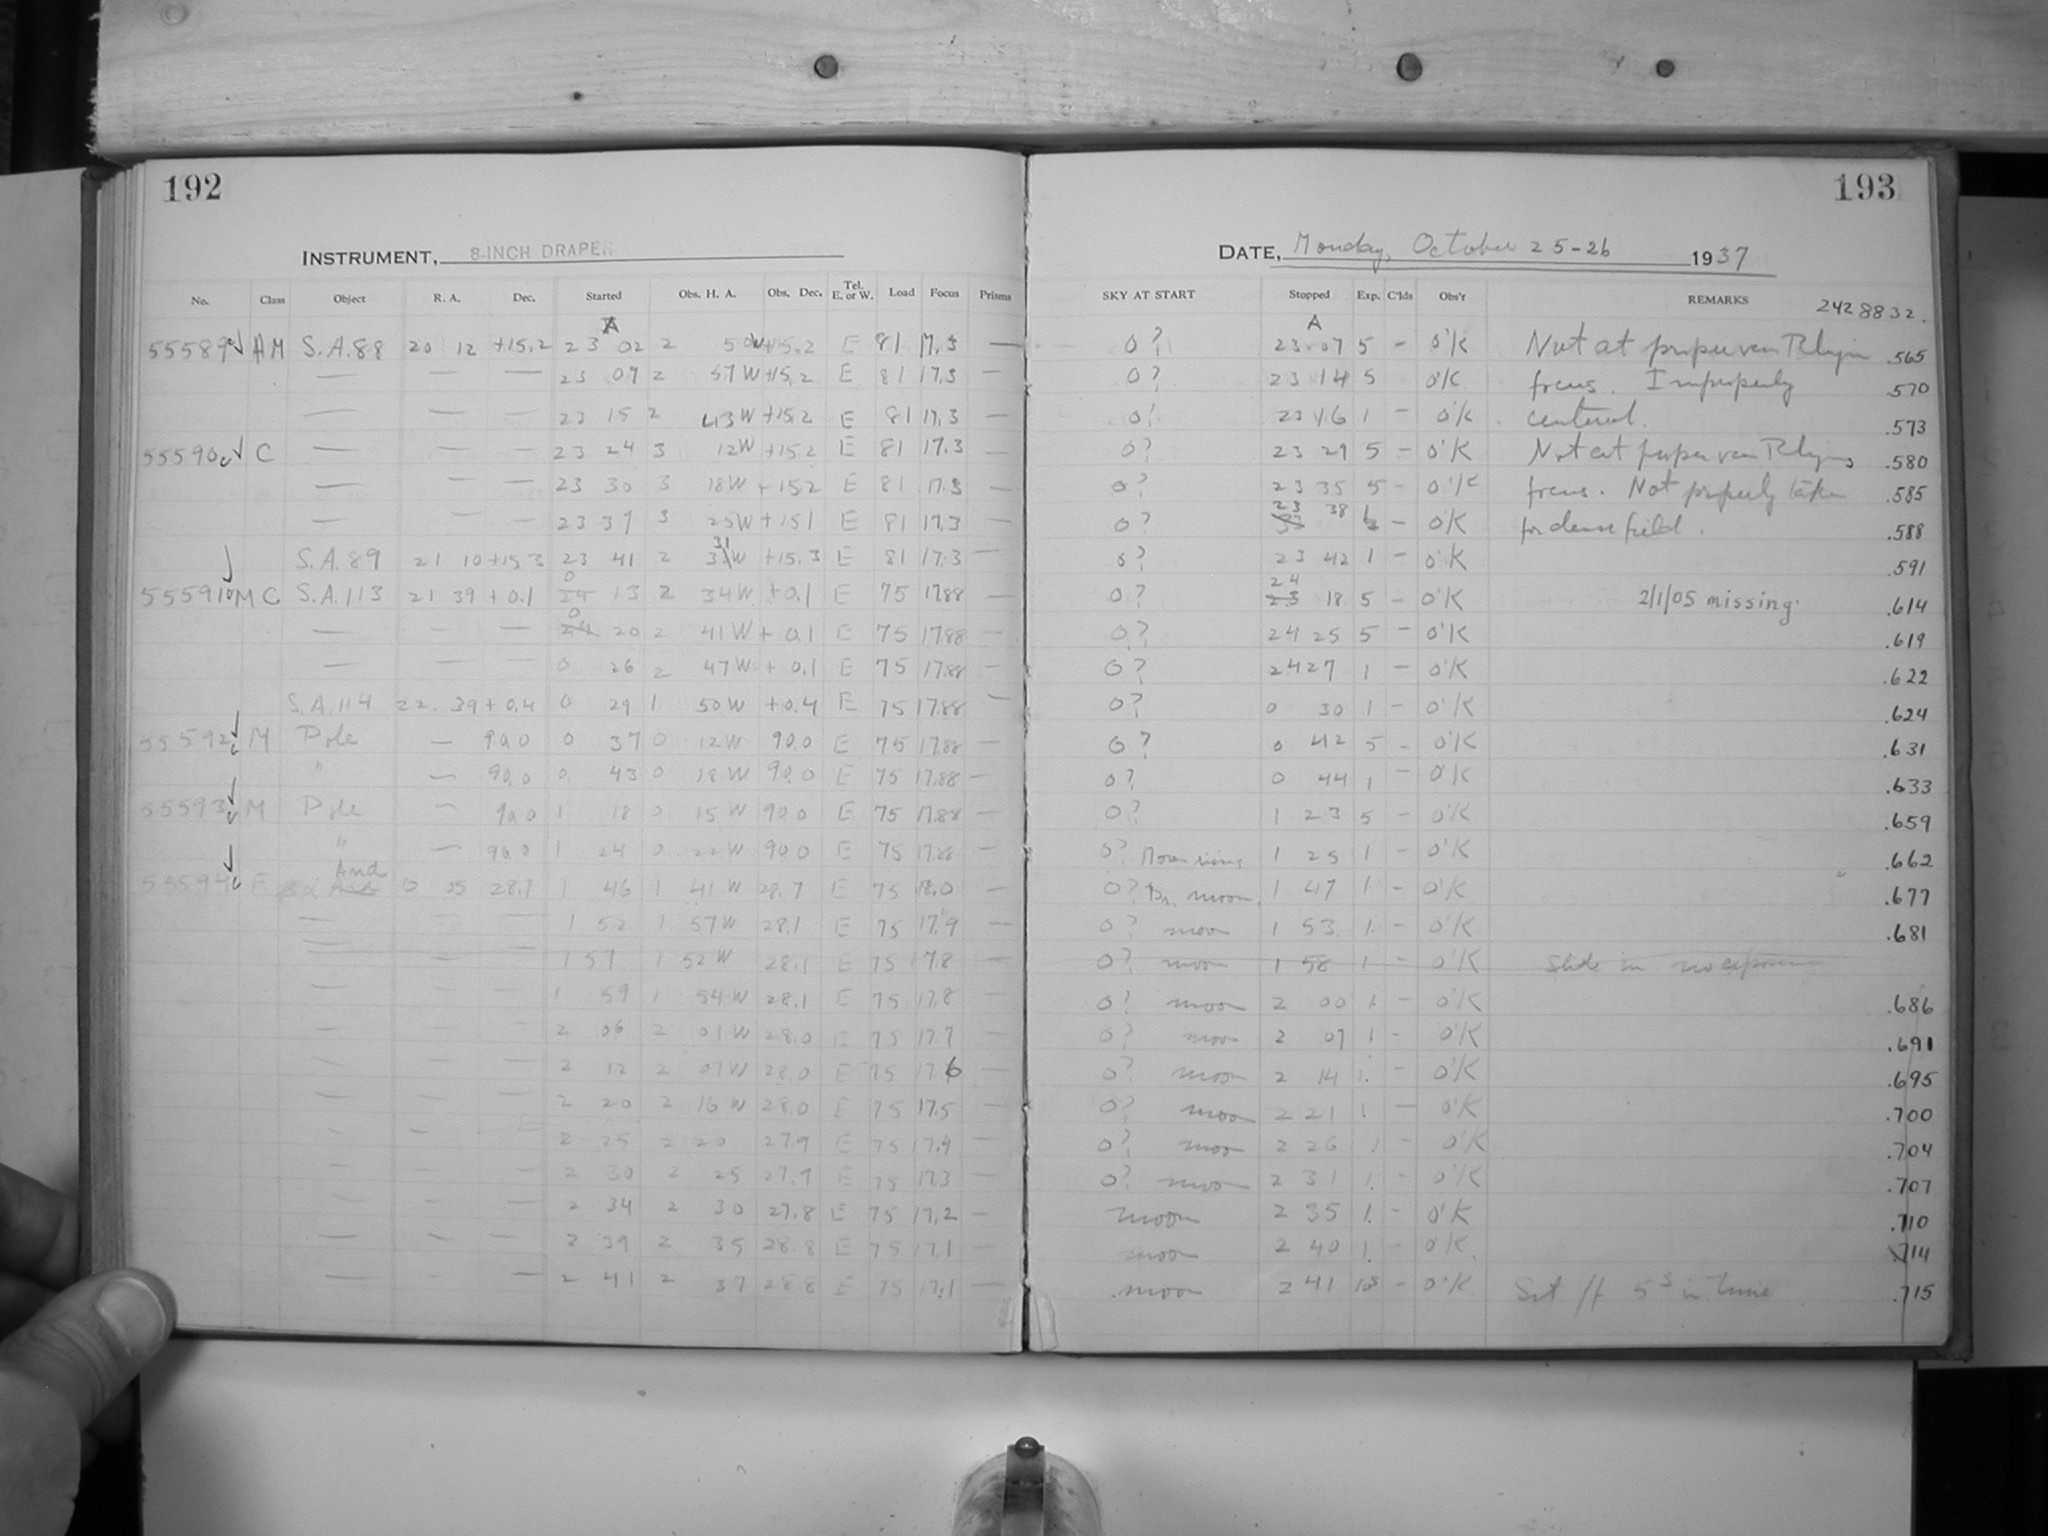 192
INSTRUMENT, 8-INCH DRAPER
No. Class Object R. A. Dec. Started Obs. H. A. Obs. Dec. Tel. E. or W. Load Focus Prisms
A
55589 AM S.A.88 20 12 +15.2 23 02 2 50W +15.2 E 81 17.3 —
— — — 23 09 2 57W +15.2 E 81 17.3 —
— — — 23 15 2 43W +15.2 E 81 17.3 —
55590 C — — — 23 24 3 12W +15.2 E 81 17.3 —
— — — 23 30 3 18W +15.2 E 81 17.3 —
— — — 23 37 3 25W +15.1 E 81 17.3 —
S.A.89 21 10 +15.3 23 41 2 31W +15.3 E 81 17.3
55591 MC S.A.113 21 39 +0.1 0 13 2 34W +0.1 E 75 17.88 —
— — — 0 20 2 41W +0.1 E 75 17.88 —
— — — 0 26 2 47W +0.1 E 75 17.88 —
S.A.114 22 39 +0.4 0 29 1 50W +0.4 E 75 17.88 —
55592 M Pole — 90.0 0 37 0 12W 90.0 E 75 17.88 —
" — 90.0 0 43 0 18W 90.0 E 75 17.88 —
55593 M Pole — 90.0 1 18 0 15W 90.0 E 75 17.88 —
" — 90.0 1 24 0 22W 90.0 E 75 17.88 —
55594 E And 0 05 28.7 1 46 1 41W 28.7 E 75 18.0 —
— — — 1 52 1 57W 28.1 E 75 17.9 —
— — — 1 57 1 52W 28.1 E 75 17.8 —
— — — 1 59 1 54W 28.1 E 75 17.8 —
— — — 2 06 2 01W 28.0 E 75 17.7 —
— — — 2 12 2 07W 28.0 E 75 17.6 —
— — — 2 20 2 16W 28.0 E 75 17.5 —
— — — 2 25 2 20 27.9 E 75 17.4 —
— — — 2 30 2 25 27.9 E 75 17.3 —
— — — 2 34 2 30 27.8 E 75 17.2 —
— — — 2 39 2 35 28.8 E 75 17.1 —
— — — 2 41 2 37 28.8 E 75 17.1 —
193
DATE, Monday, October 25-26 1937
SKY AT START Stopped Exp. C'lds Obs'r REMARKS 2428832.
A
0? 23 07 5 – O'K Not at proper van Rhijn .565
0? 23 14 5 O'K focus. Improperly .570
0? 23 16 1 – O'K centered. .573
0? 23 29 5 – O'K Not at proper van Rhijn .580
0? 23 35 5 – O'K focus. Not properly taken .585
0? 23 38 1 – O'K for dense field. .588
0? 23 42 1 – O'K .591
0? 24 18 5 – O'K 2/1/05 missing. .614
0? 24 25 5 – O'K .619
0? 24 27 1 – O'K .622
0? 0 30 1 – O'K .624
0? 0 42 5 – O'K .631
0? 0 44 1 – O'K .633
0? 1 23 5 – O'K .659
0? Moon rising 1 25 1 – O'K .662
0? Br. moon. 1 47 1. – O'K .677
0? moon 1 53 1. – O'K .681
0? moon 1 58 1 – O'K Slide in no exposure
0? moon 2 00 1. – O'K .686
0? moon 2 07 1 – O'K .691
0? moon 2 14 1. – O'K .695
0? moon 2 21 1 – O'K .700
0? moon 2 26 1 – O'K .704
0? moon 2 31 1. – O'K .707
moon 2 35 1. – O'K .710
moon 2 40 1. – O'K. .714
moon 2 41 10s – O'K 5s in time .715